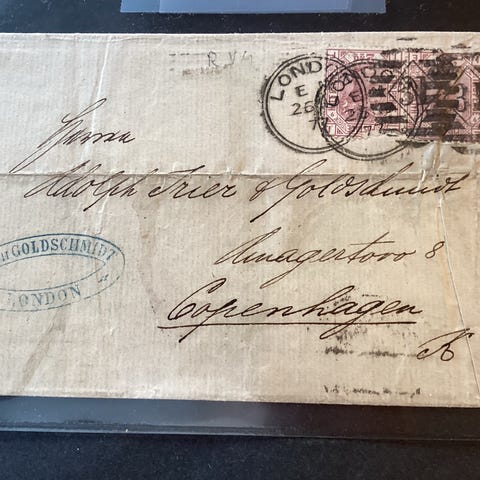 R.V.
LONDON
E
26
LONDON
E
77
Herrn
Adolph Trier & Goldschmidt
Amagertorv 8
Copenhagen
K
GOLDSCHMIDT
LONDON